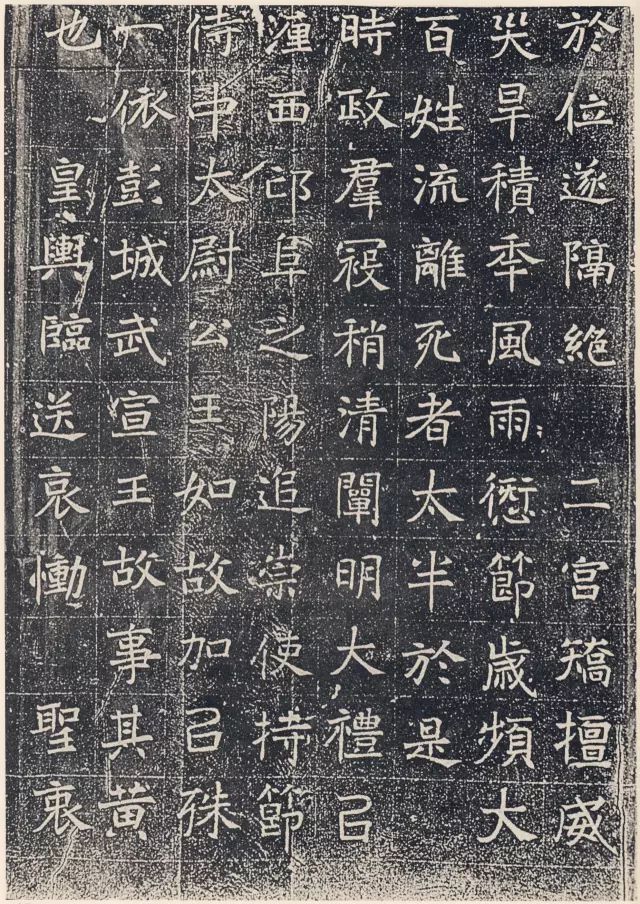 於位遂隔絕　二宮矯擅威
災旱積年風雨愆節歲頻大
百姓流離死者太半於是
時政羣寇稍清闡明大禮㠯
瀍西邙阜之陽追崇使持節
侍中太尉公王如故加㠯殊
一依彭城武宣王故事其黄
也　皇輿臨送哀慟　聖衷